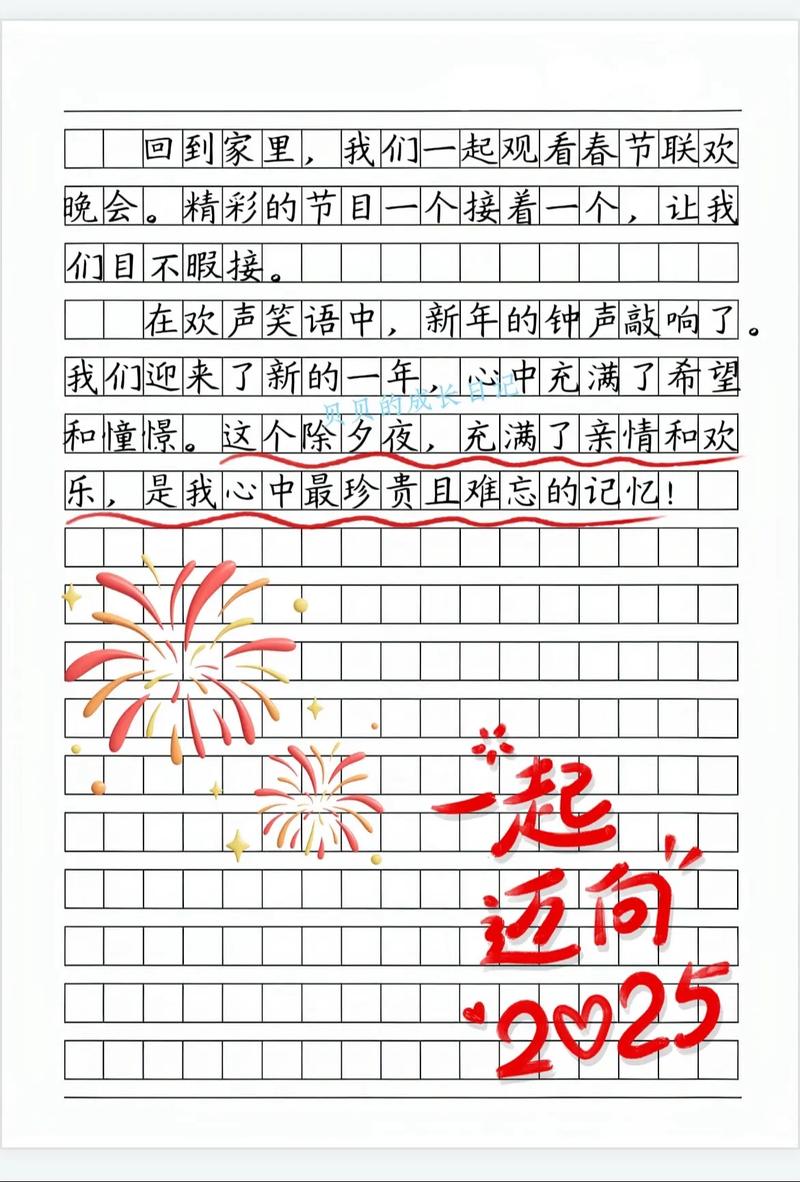 回到家里，我们一起观看春节联欢
晚会。精彩的节目一个接着一个，让我
们目不暇接。
在欢声笑语中，新年的钟声敲响了。
我们迎来了新的一年，心中充满了希望
贝贝的成长日记
和憧憬。这个除夕夜，充满了亲情和欢
乐，是我心中最珍贵且难忘的记忆！
一起
迈向
2025